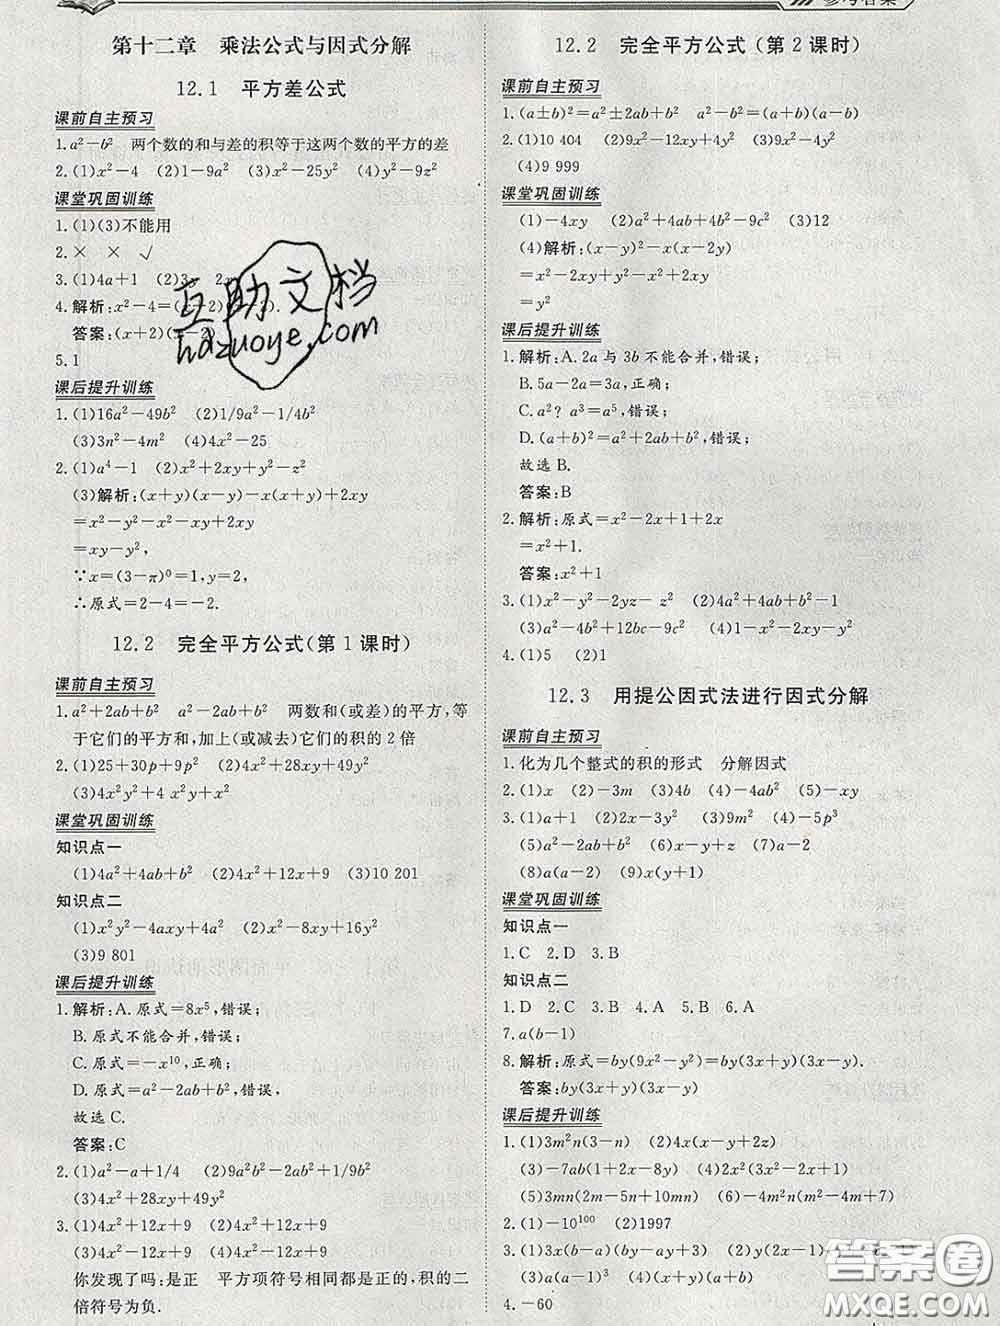 参考答案
第十二章 乘法公式与因式分解
12.1 平方差公式
课前自主预习
1.a²-b² 两个数的和与差的积等于这两个数的平方的差
2.(1)x²-4 (2)1-9a² (3)x²-25y² (4)y²-9z²
课堂巩固训练
1.(1)(3)不能用
2.× × √
3.(1)4a+1 (2)3y 2x
4.解析:x²-4=(x+2)(x-2).
答案:(x+2)(x-2)
5.1
课后提升训练
1.(1)16a²-49b² (2)1/9a²-1/4b²
(3)3n²-4m² (4)4x²-25
2.(1)a⁴-1 (2)x²+2xy+y²-z²
(3)解析:(x+y)(x-y)-x(x+y)+2xy
=x²-y²-x²-xy+2xy
=xy-y²,
∵x=(3-π)⁰=1,y=2,
∴原式=2-4=-2.
12.2 完全平方公式(第1课时)
课前自主预习
1.a²+2ab+b² a²-2ab+b² 两数和(或差)的平方,等
于它们的平方和,加上(或减去)它们的积的2倍
2.(1)25+30p+9p² (2)4x²+28xy+49y²
(3)4x²y²+4 x²y²+x²
课堂巩固训练
知识点一
(1)4a²+4ab+b² (2)4x²+12x+9 (3)10 201
知识点二
(1)x²y²-4axy+4a² (2)64x²-8xy+16y²
(3)9 801
课后提升训练
1.解析:A.原式=8x⁵,错误;
B.原式不能合并,错误;
C.原式=-x¹⁰,正确;
D.原式=a²-2ab+b²,错误,
故选C.
答案:C
2.(1)a²-a+1/4 (2)9a²b²-2ab²+1/9b²
(3)4x²+28xy+49y²
3.(1)4x²+12x+9 (2)4x²-12x+9
(3)4x²-12x+9 (4)4x²+12x+9
你发现了吗:是正 平方项符号相同都是正的,积的二
倍符号为负.
12.2 完全平方公式(第2课时)
课前自主预习
1.(a±b)²=a²±2ab+b² a²-b²=(a+b)(a-b)
2.(1)10 404 (2)9x²-12xy+4y² (3)9x²-4y²
(4)9 999
课堂巩固训练
(1)-4xy (2)a²+4ab+4b²-9c² (3)12
(4)解析:(x-y)²-x(x-2y)
=x²-2xy+y²-x²+2xy
=y²
课后提升训练
1.解析:A.2a与3b不能合并,错误;
B.5a-2a=3a,正确;
C.a²? a³=a⁵,错误;
D.(a+b)²=a²+2ab+b²,错误;
故选B.
答案:B
2.解析:原式=x²-2x+1+2x
=x²+1.
答案:x²+1
3.(1)x²-y²-2yz-z² (2)4a²+4ab+b²-1
(3)a²-4b²+12bc-9c² (4)1-x²-2xy-y²
4.(1)5 (2)1
12.3 用提公因式法进行因式分解
课前自主预习
1.化为几个整式的积的形式 分解因式
2.(1)x (2)-3m (3)4b (4)-4ab² (5)-xy
3.(1)a+1 (2)2x-3y (3)9-a² (4)-5p³
(5)a²-2ab+b² (6)x-y+z (7)a-2
(8)a(a-2) (9)x(x+1)
课堂巩固训练
知识点一
1.C 2.D 3.B
知识点二
1.D 2.D 3.B 4.A 5.B 6.A
7.a(b-1)
8.解析:原式=by(9x²-y²)=by(3x+y)(3x-y).
答案:by(3x+y)(3x-y)
课后提升训练
1.(1)3m²n(3-n) (2)4x(x-y+2z)
(3)-7ab(1+2x-8y) (4)2x²(3x²-2x+1)
(5)3mn(2m-5n+10) (6)-4m²(m²-4m+7)
2.(1)-10¹⁰⁰ (2)1997
3.(1)3x(b-a)(by-ay+3) (2)(b-a)(by-ay+x)
(3)2(a-1)³ (4)x(x-y)(a+b)
4.-60
互助文档
hdzuoye.com
答案圈
MXQE.COM